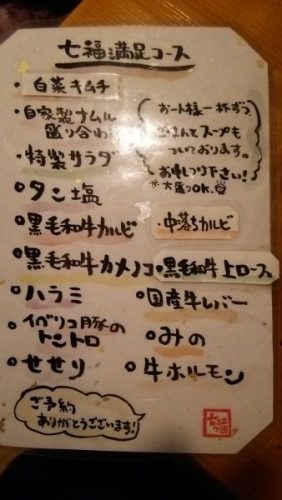 七福満足コース
・白菜キムチ
・自家製ナムル
盛り合わせ
・特製サラダ
・タン塩
・黒毛和牛カルビ
・黒毛和牛カメノコ
・ハラミ
・イベリコ豚の
トントロ
・せせり
お一人様一杯ずつ
ごはんとスープも
ついております。
お申しつけ下さい!
※大盛りOK.
・中落ちカルビ
・黒毛和牛上ロース
・国産牛レバー
・みの
・牛ホルモン
ご予約
ありがとうございます!